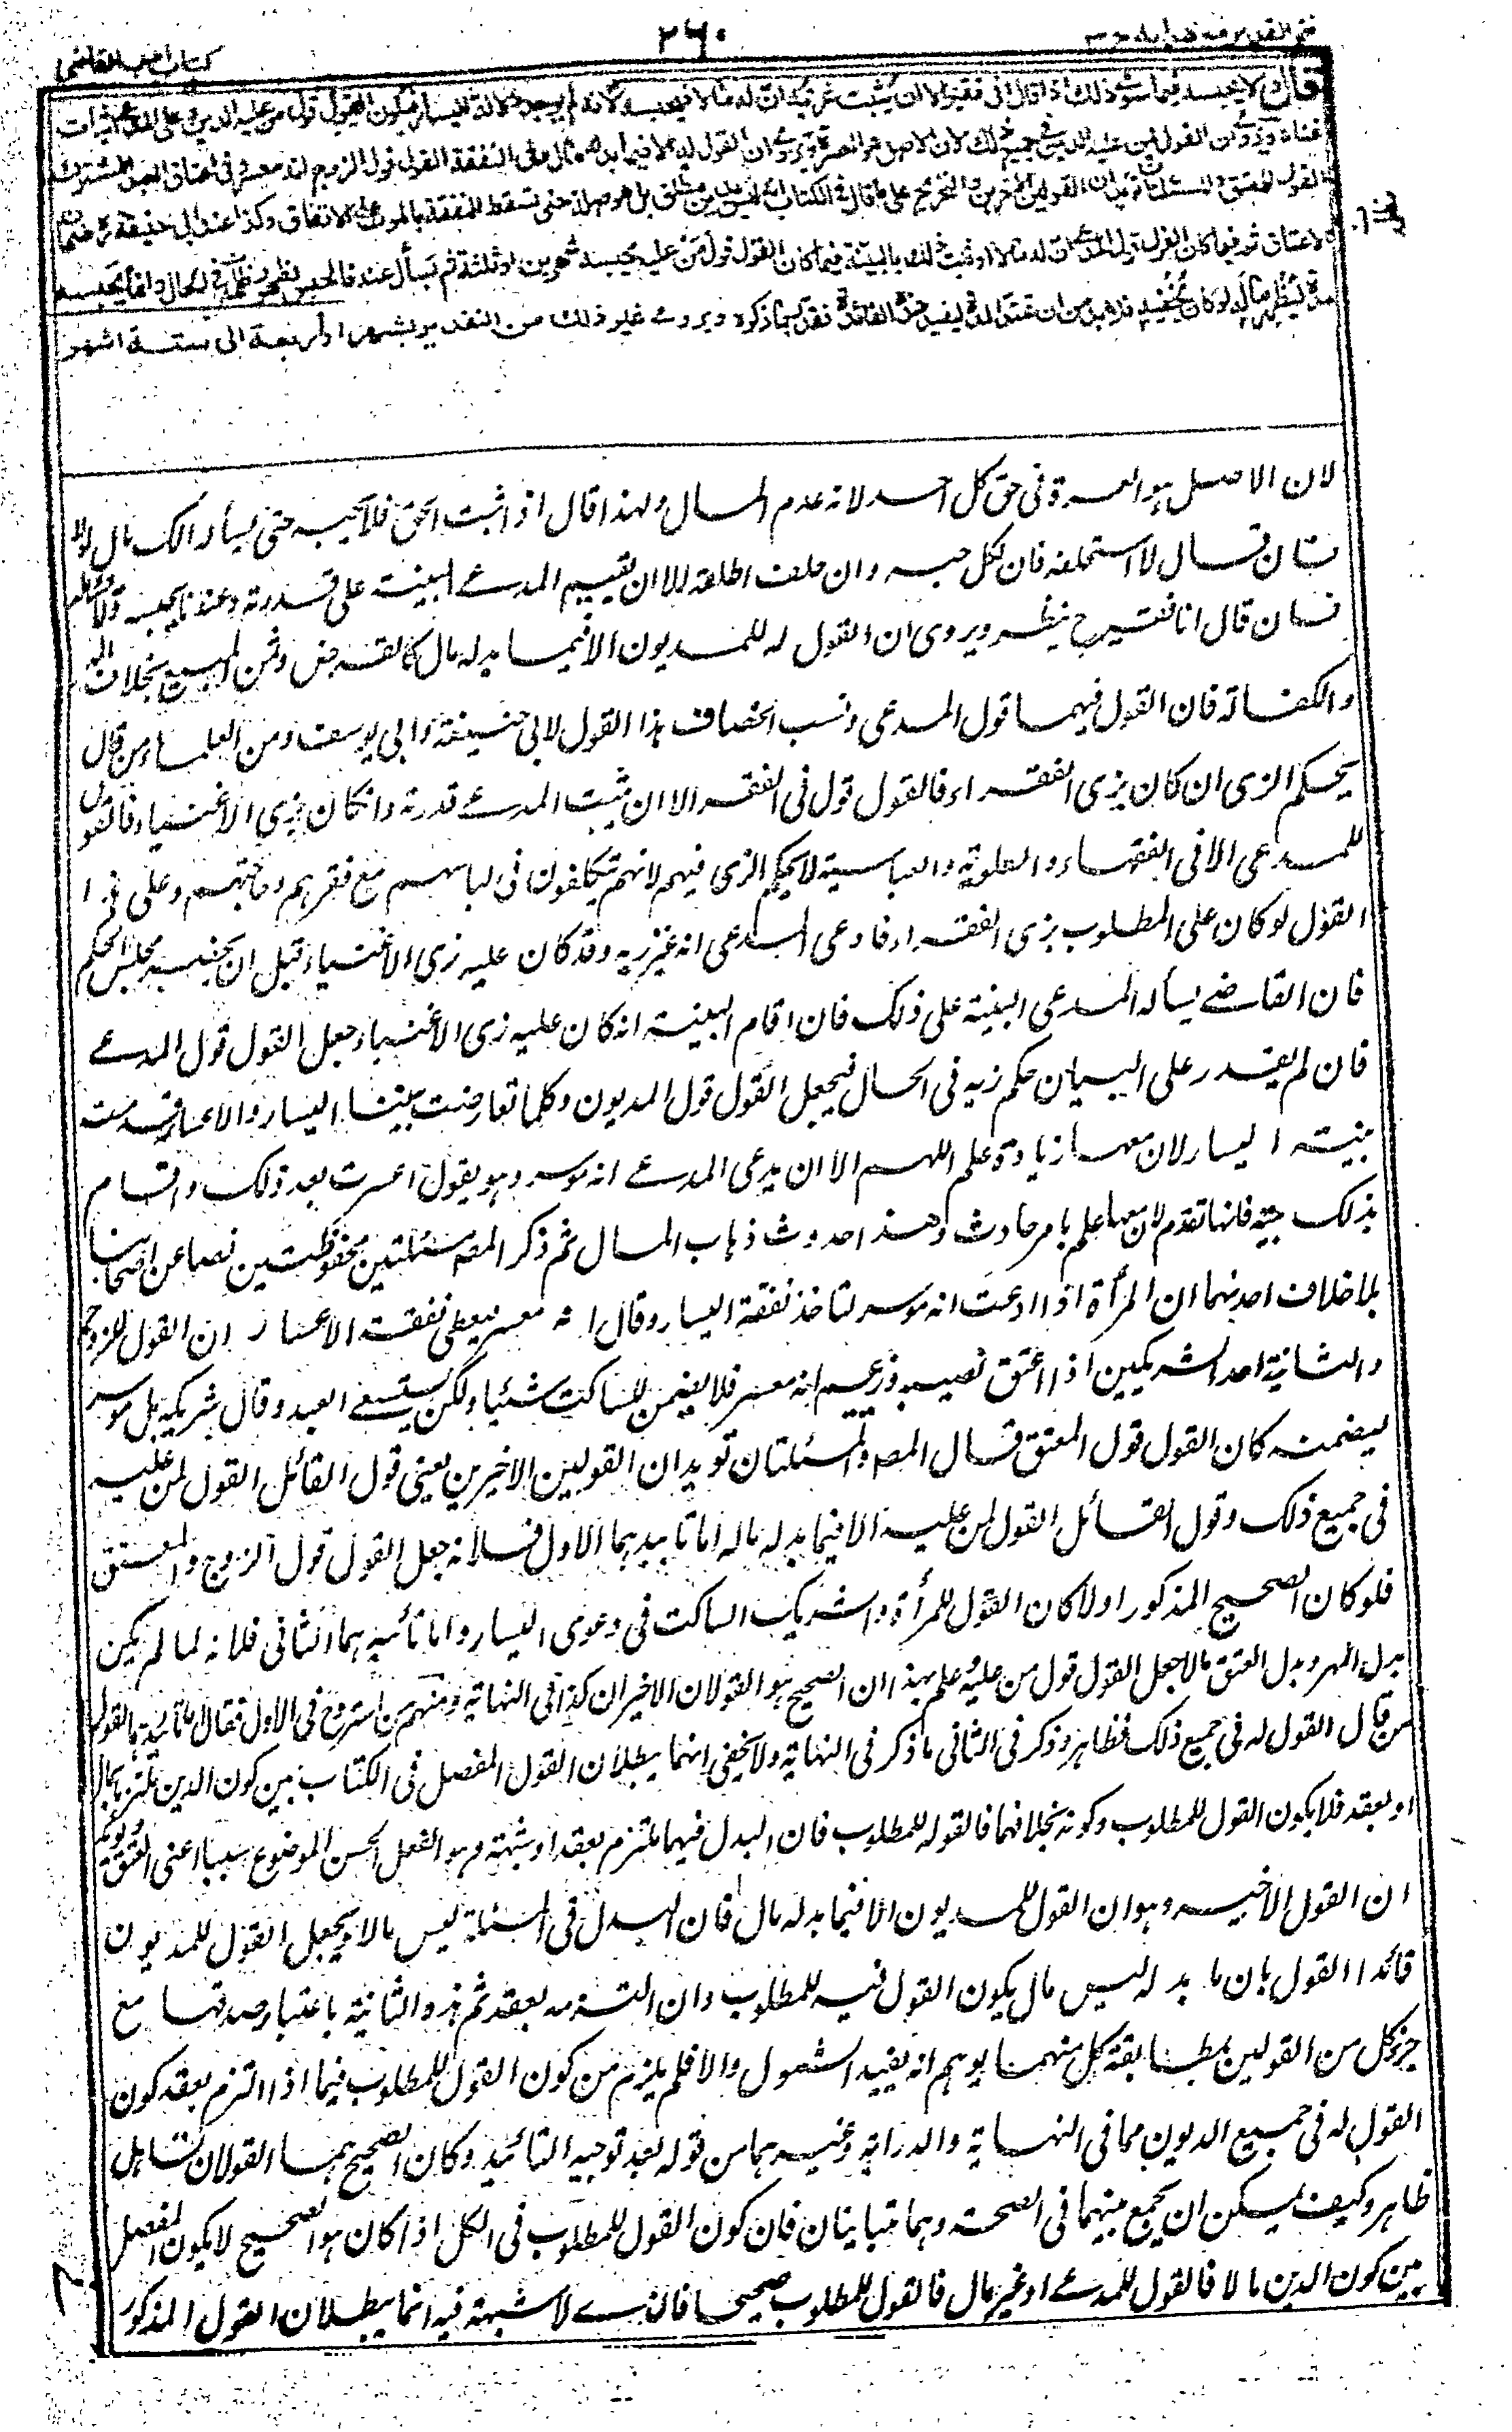 ٢٦٠
كتاب ادب القاضي
قال لا يحبسه فيما سوى ذلك اذا قال انى فقير الا ان يثبت غريمه ان له مالا فيحبسه لانه لم يوجد دلالة اليسار فيكون القول قول من عليه الدين وعلى المدعى اثبات
غناه ويروى ان القول لمن عليه الدين فى جميع ذلك لان الاصل هو العسرة ويروى ان القول له الا فيما بدله مال وفى النفقة القول قول الزوج انه معسر وفى اعتاق العبد المشترك
القول للمعتق والمسئلتان تؤيدان القولين الاخيرين والتخريج على ما قال فى الكتاب انه ليس بدين مطلق بل هو صلة حتى تسقط النفقة بالموت على الاتفاق وكذا عند ابى حنيفة ضمان
الاعتاق ثم فيما كان القول قول المدعى ان له مالا او ثبت ذلك بالبينة فيما كان القول قول من عليه يحبسه شهرين او ثلثة ثم يسأل عنه فالحبس لظهور ظلمه فى الحال وانما يحبسه
مدة ليظهر ماله لو كان يخفيه فلا بد من ان تمتد المدة ليفيد هذه الفائدة فقدره بما ذكره ويروى غير ذلك من التقدير بشهر او اربعة الى ستة اشهر
لان الاصل هو العسرة فى حق كل احد لانه عدم المال ولهذا قال اذا ثبت الحق فلا يحبسه حتى يسأله ألك مال اولا
فان قال لا استحلفه فان نكل حبسه وان حلف اطلقه الا ان يقيم المدعى البينة على قدرته وعندنا يحبسه ولا يسأله
فان قال انا فقير ح ينظر ويروى ان القول له للمديون الا فيما بدله مال كالقرض وثمن المبيع بخلاف المهر
والكفالة فان القول فيهما قول المدعى ونسب الخصاف هذا القول لابى حنيفة وابى يوسف ومن العلماء من قال
يحكم الزى ان كان بزى الفقراء فالقول قوله فى الفقر الا ان يثبت المدعى قدرته وان كان بزى الاغنياء فالقول
للمدعى الا فى الفقهاء والعلوية والعباسية لا يحكم الزى فيهم لانهم يتكلفون فى لباسهم مع فقرهم وحاجتهم وعلى هذا
القول لو كان على المطلوب بزى الفقراء فادعى المدعى انه غير زيه وقد كان عليه زى الاغنياء قبل ان يحضر مجلس الحكم
فان القاضى يسأله المدعى البينة على ذلك فان اقام البينة انه كان عليه زى الاغنياء جعل القول قول المدعى
فان لم يقدر على البيان حكم زيه فى الحال فيجعل القول قول المديون وكلما تعارضت بينتا اليسار والاعسار قدمت
بينة اليسار لان معها زيادة علم اللهم الا ان يدعى المدعى انه موسر وهو يقول اعسرت بعد ذلك واقام
بذلك بينة فانها تقدم لان معها علما بامر حادث وهذا حدوث ذهاب المال ثم ذكر المصـ مسئلتين محفوظتين نصا عن اصحابنا
بلا خلاف احدهما ان المرأة اذا ادعت انه موسر لتاخذ نفقة اليسار وقال انه معسر ليعطى نفقة الاعسار ان القول للزوج
والثانية احد الشريكين اذا اعتق نصيبه وزعم انه معسر فلا يضمن للساكت شيئا ولكن يستسعى العبد وقال شريكه بل موسر
ليضمنه كان القول قول المعتق قال المصـ والمسئلتان تؤيدان القولين الاخيرين يعنى قول القائل القول لمن عليه
فى جميع ذلك وقول القائل القول لمن عليه الا فيما بدله مال اما تاييدهما الاول فلانه جعل القول قول الزوج والمعتق
فلو كان الصحيح المذكور اولا كان القول للمرأة والشريك الساكت فى دعوى اليسار واما تأييدهما الثانى فلانه لما لم يكن
بدل المهر وبدل العتق مالا جعل القول قول من عليه وعلم بهذا ان الصحيح هو القولان الاخيران كذا فى النهاية ومنهم من استروح فى الاول فقال ما تأييدهما القول
من قال القول له فى جميع ذلك فظاهر وذكر فى الثانى ما ذكر فى النهاية ولا يخفى انهما يبطلان القول المفصل فى الكتاب بين كون الدين ملتزما بمال
او بعقد فلا يكون القول للمطلوب وكونه بخلافهما فالقول للمطلوب فان البدل فيهما ملتزم بعقد او شبهة وهو الفعل الحسن الموضوع سببا اعنى العتق ويؤيد
ان القول الاخير وهو ان القول للمديون الا فيما بدله مال فان البدل فى المسئلة ليس مالا ويجعل القول للمديون
قائدا القول بان ما بدله ليس مال يكون القول فيه للمطلوب وان التزمه بعقد ثم هذه الثانية باعتبار صدقها مع
جزء كل من القولين بمطابقة كل منهما يوهم انه يفيد الشمول والا فلم يلزم من كون القول للمطلوب فيما اذا التزم بعقد كون
القول له فى جميع الديون مما فى النهاية والدراية وغيرهما من قوله بعد توجيه التائيد وكان الصحيح هما القولان تساهل
ظاهر وكيف يمكن ان يجمع بينهما فى الصحة وهما متباينان فان كون القول للمطلوب فى الكل اذا كان هو الصحيح لا يكون المفصل
بين كون الدين مالا فالقول للمدعى او غير مال فالقول للمطلوب صحيحا فالذى لا شبهة فيه انهما يبطلان القول المذكور